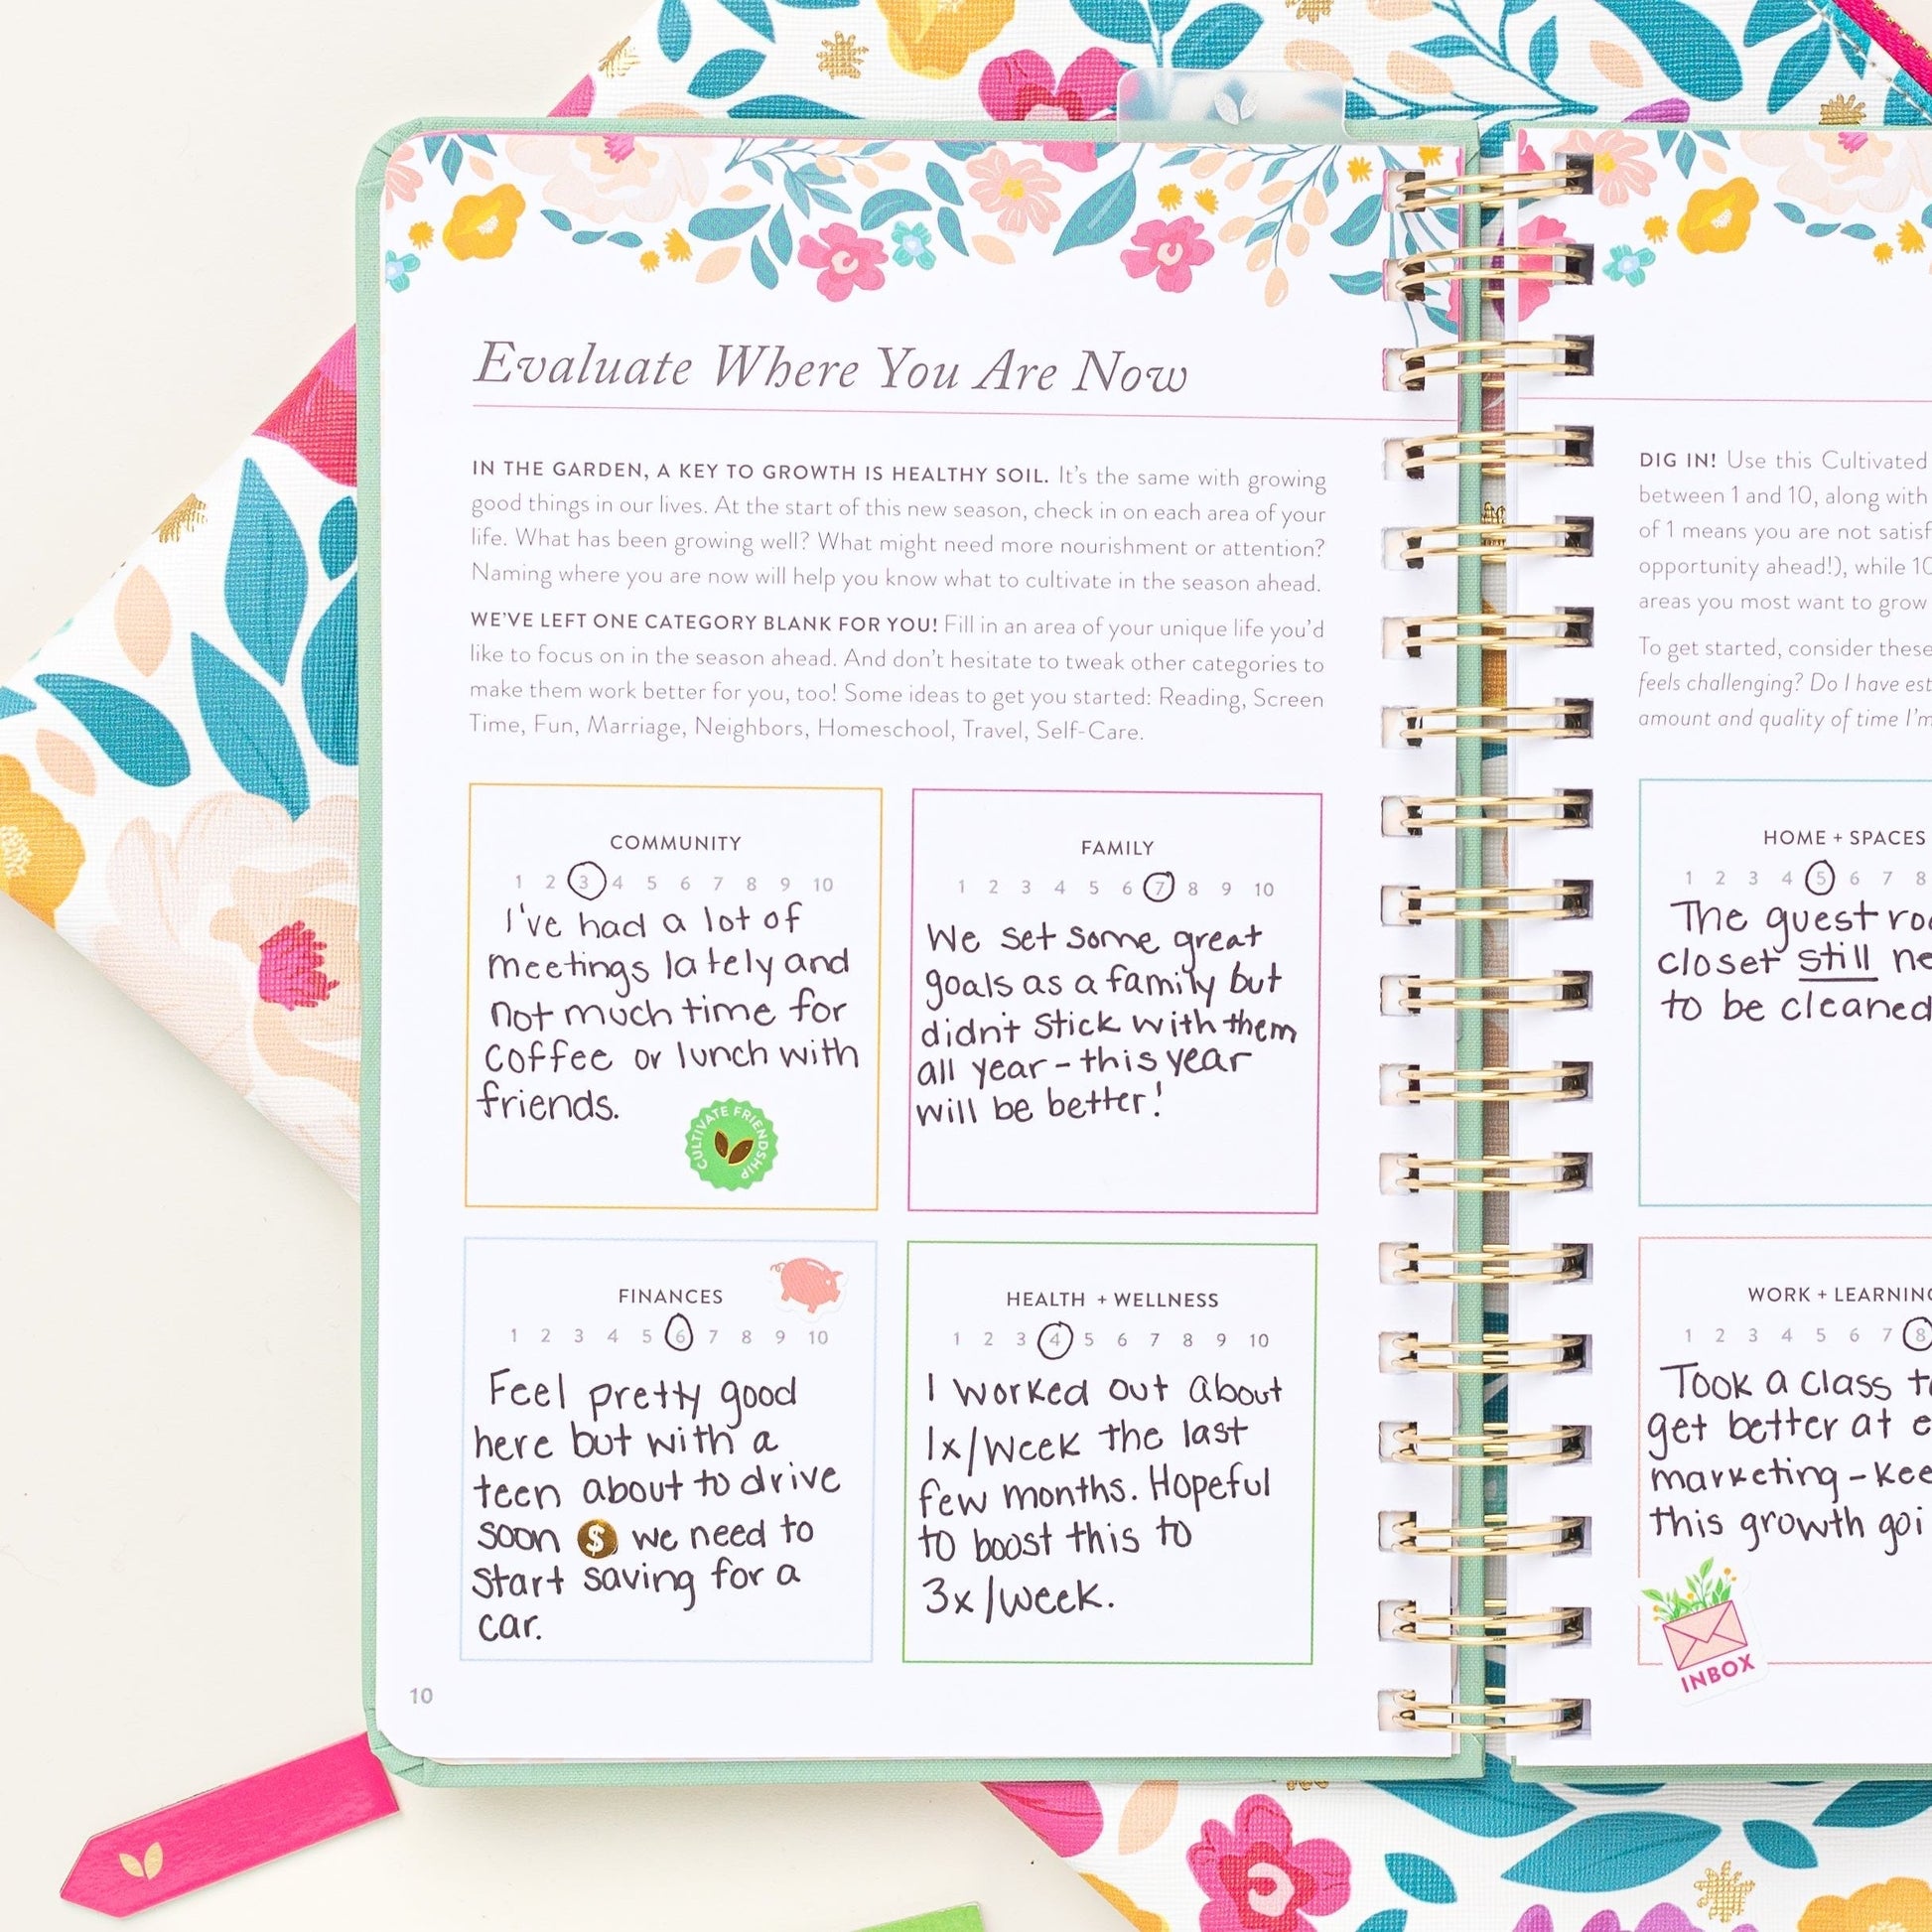 Evaluate Where You Are Now
IN THE GARDEN, A KEY TO GROWTH IS HEALTHY SOIL. It's the same with growing
good things in our lives. At the start of this new season, check in on each area of your
life. What has been growing well? What might need more nourishment or attention?
Naming where you are now will help you know what to cultivate in the season ahead.
WE'VE LEFT ONE CATEGORY BLANK FOR YOU! Fill in an area of your unique life you'd
like to focus on in the season ahead. And don't hesitate to tweak other categories to
make them work better for you, too! Some ideas to get you started: Reading, Screen
Time, Fun, Marriage, Neighbors, Homeschool, Travel, Self-Care.
COMMUNITY
1 2 3 4 5 6 7 8 9 10
I've had a lot of
meetings lately and
not much time for
coffee or lunch with
friends.
CULTIVATE FRIENDSHIP
FAMILY
1 2 3 4 5 6 7 8 9 10
We set some great
goals as a family but
didn't stick with them
all year - this year
will be better!
FINANCES
1 2 3 4 5 6 7 8 9 10
Feel pretty good
here but with a
teen about to drive
soon $ we need to
start saving for a
car.
HEALTH + WELLNESS
1 2 3 4 5 6 7 8 9 10
I worked out about
1x/week the last
few months. Hopeful
to boost this to
3x/week.
10
DIG IN! Use this Cultivated
between 1 and 10, along with
of 1 means you are not
opportunity ahead!), while 10
areas you most want to grow
To get started, consider these
feels challenging? Do I have
amount and quality of time I'm
HOME + SPACES
1 2 3 4 5 6 7 8
The guest
closet still
to be cleaned
WORK + LEARNING
1 2 3 4 5 6 7 8
Took a class
get better at
marketing -
this growth
INBOX